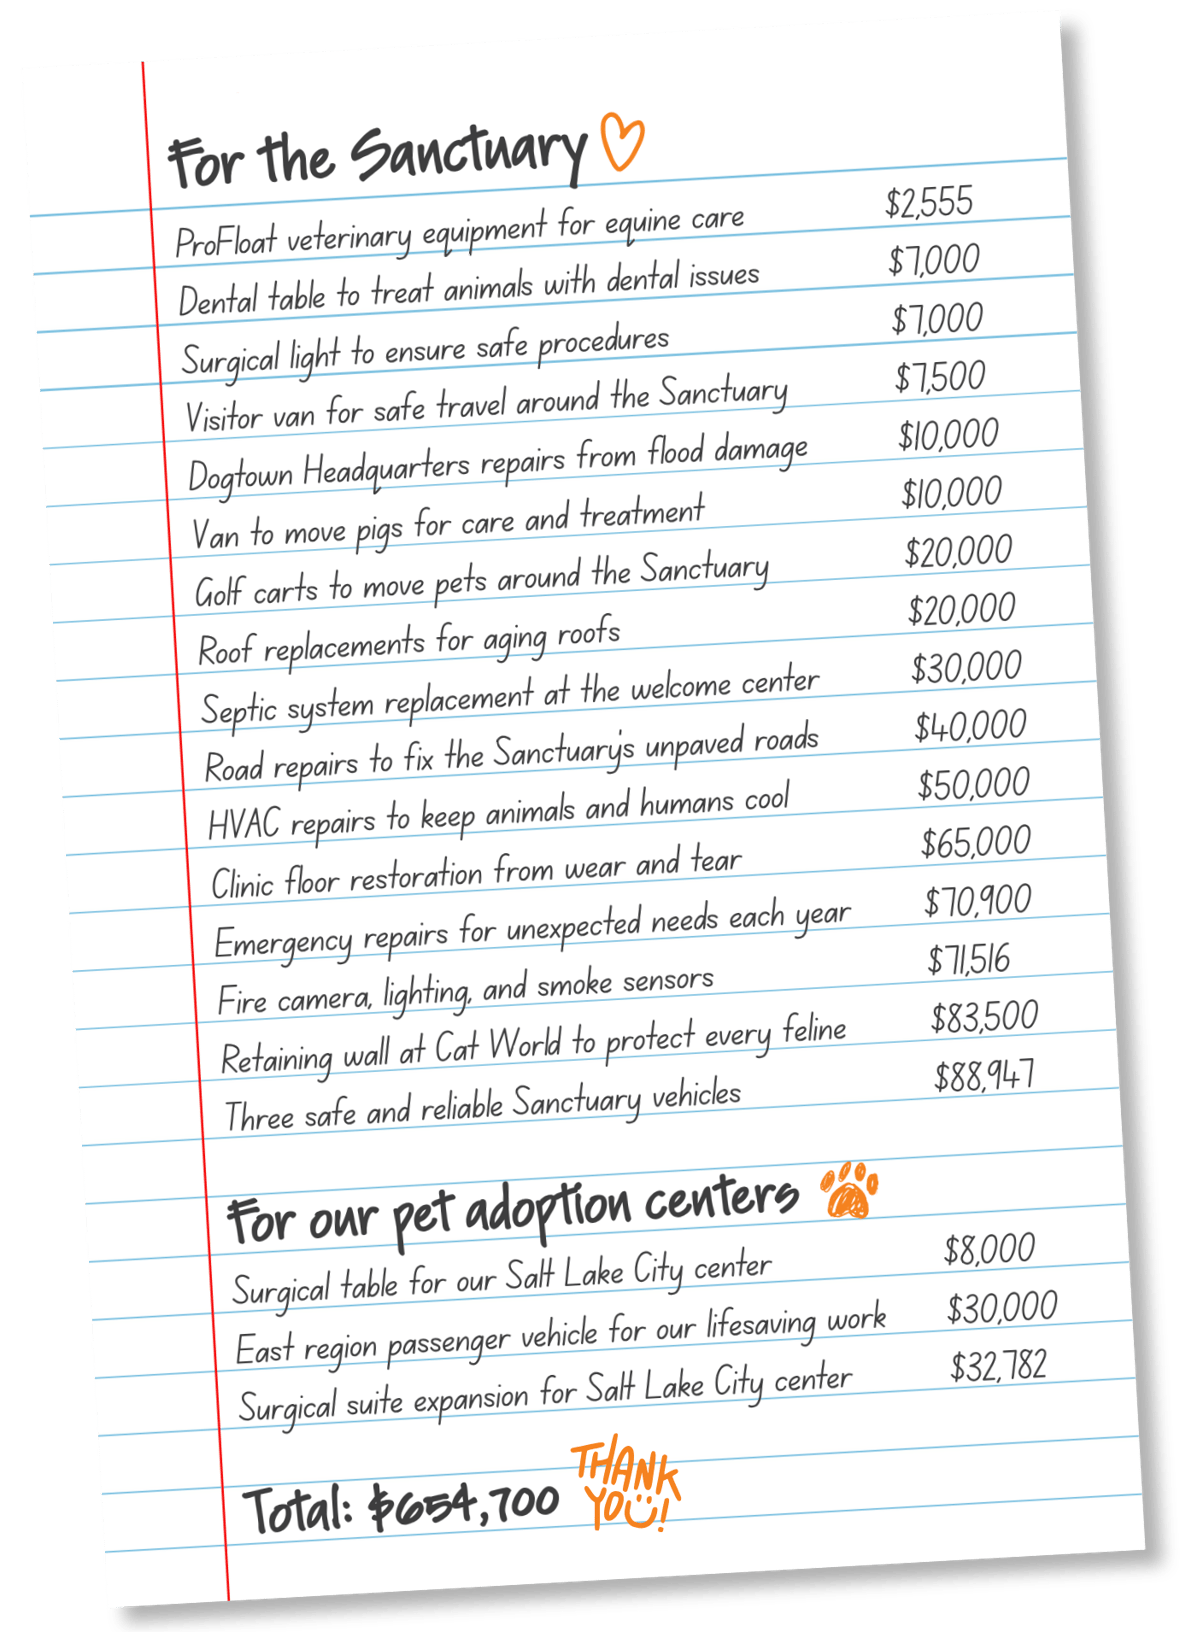 For the Sanctuary
ProFloat veterinary equipment for equine care $2,555
Dental table to treat animals with dental issues $7,000
Surgical light to ensure safe procedures $7,000
Visitor van for safe travel around the Sanctuary $7,500
Dogtown Headquarters repairs from flood damage $10,000
Van to move pigs for care and treatment $10,000
Golf carts to move pets around the Sanctuary $20,000
Roof replacements for aging roofs $20,000
Septic system replacement at the welcome center $30,000
Road repairs to fix the Sanctuary's unpaved roads $40,000
HVAC repairs to keep animals and humans cool $50,000
Clinic floor restoration from wear and tear $65,000
Emergency repairs for unexpected needs each year $70,900
Fire camera, lighting, and smoke sensors $71,516
Retaining wall at Cat World to protect every feline $83,500
Three safe and reliable Sanctuary vehicles $88,947
For our pet adoption centers
Surgical table for our Salt Lake City center $8,000
East region passenger vehicle for our lifesaving work $30,000
Surgical suite expansion for Salt Lake City center $32,782
Total: $654,700
THANK
YOU!